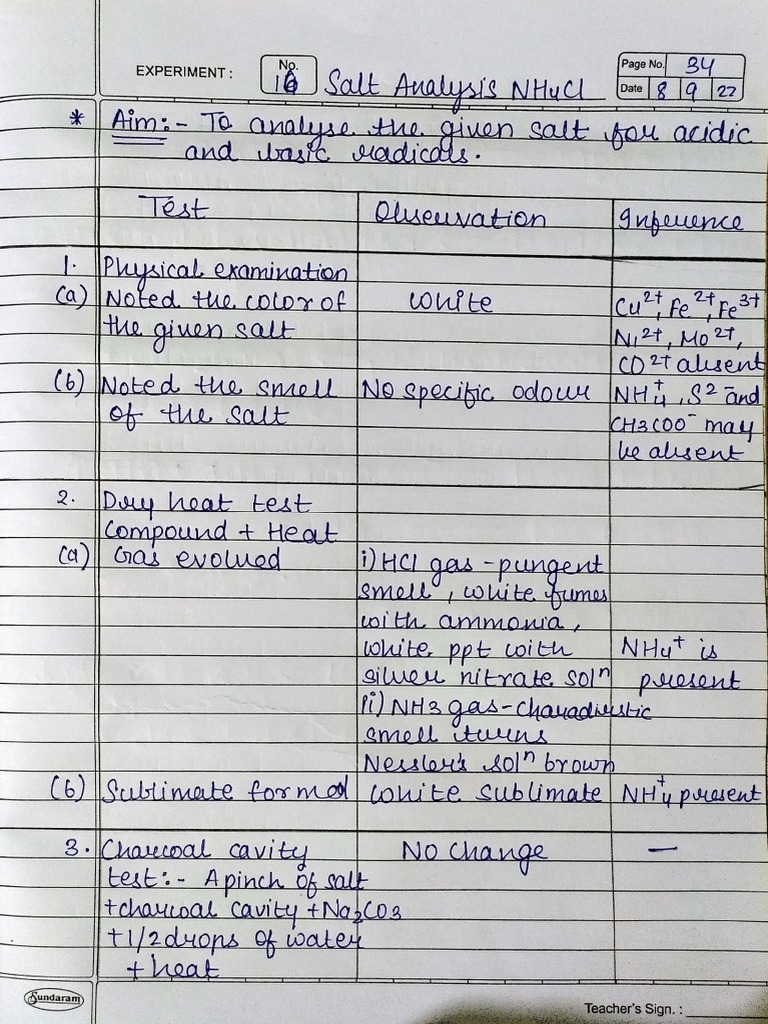 EXPERIMENT : No. 16 Salt Analysis NH4Cl Page No. 34
Date 8 9 22
* Aim:- To analyse the given salt for acidic
and basic radicals.
Test Observation Inference
1. Physical examination
(a) Noted the color of white Cu²⁺, Fe²⁺, Fe³⁺
the given salt Ni²⁺, Mo²⁺,
CO²⁺ absent
(b) Noted the smell No specific odour NH₄⁺, S²⁻ and
of the salt CH3COO⁻ may
be absent
2. Dry heat test
Compound + Heat
(a) Gas evolved i) HCl gas - pungent
smell, white fumes
with ammonia,
white ppt with NH4⁺ is
silver nitrate solⁿ present
ii) NH3 gas-
smell turns
Nessler's solⁿ brown
(b) Sublimate formed white sublimate NH₄⁺ present
3. Charcoal cavity No change —
test:- A pinch of salt
+charcoal cavity +Na2CO3
+1/2 drops of water
+ heat
Sundaram
Teacher's Sign. :